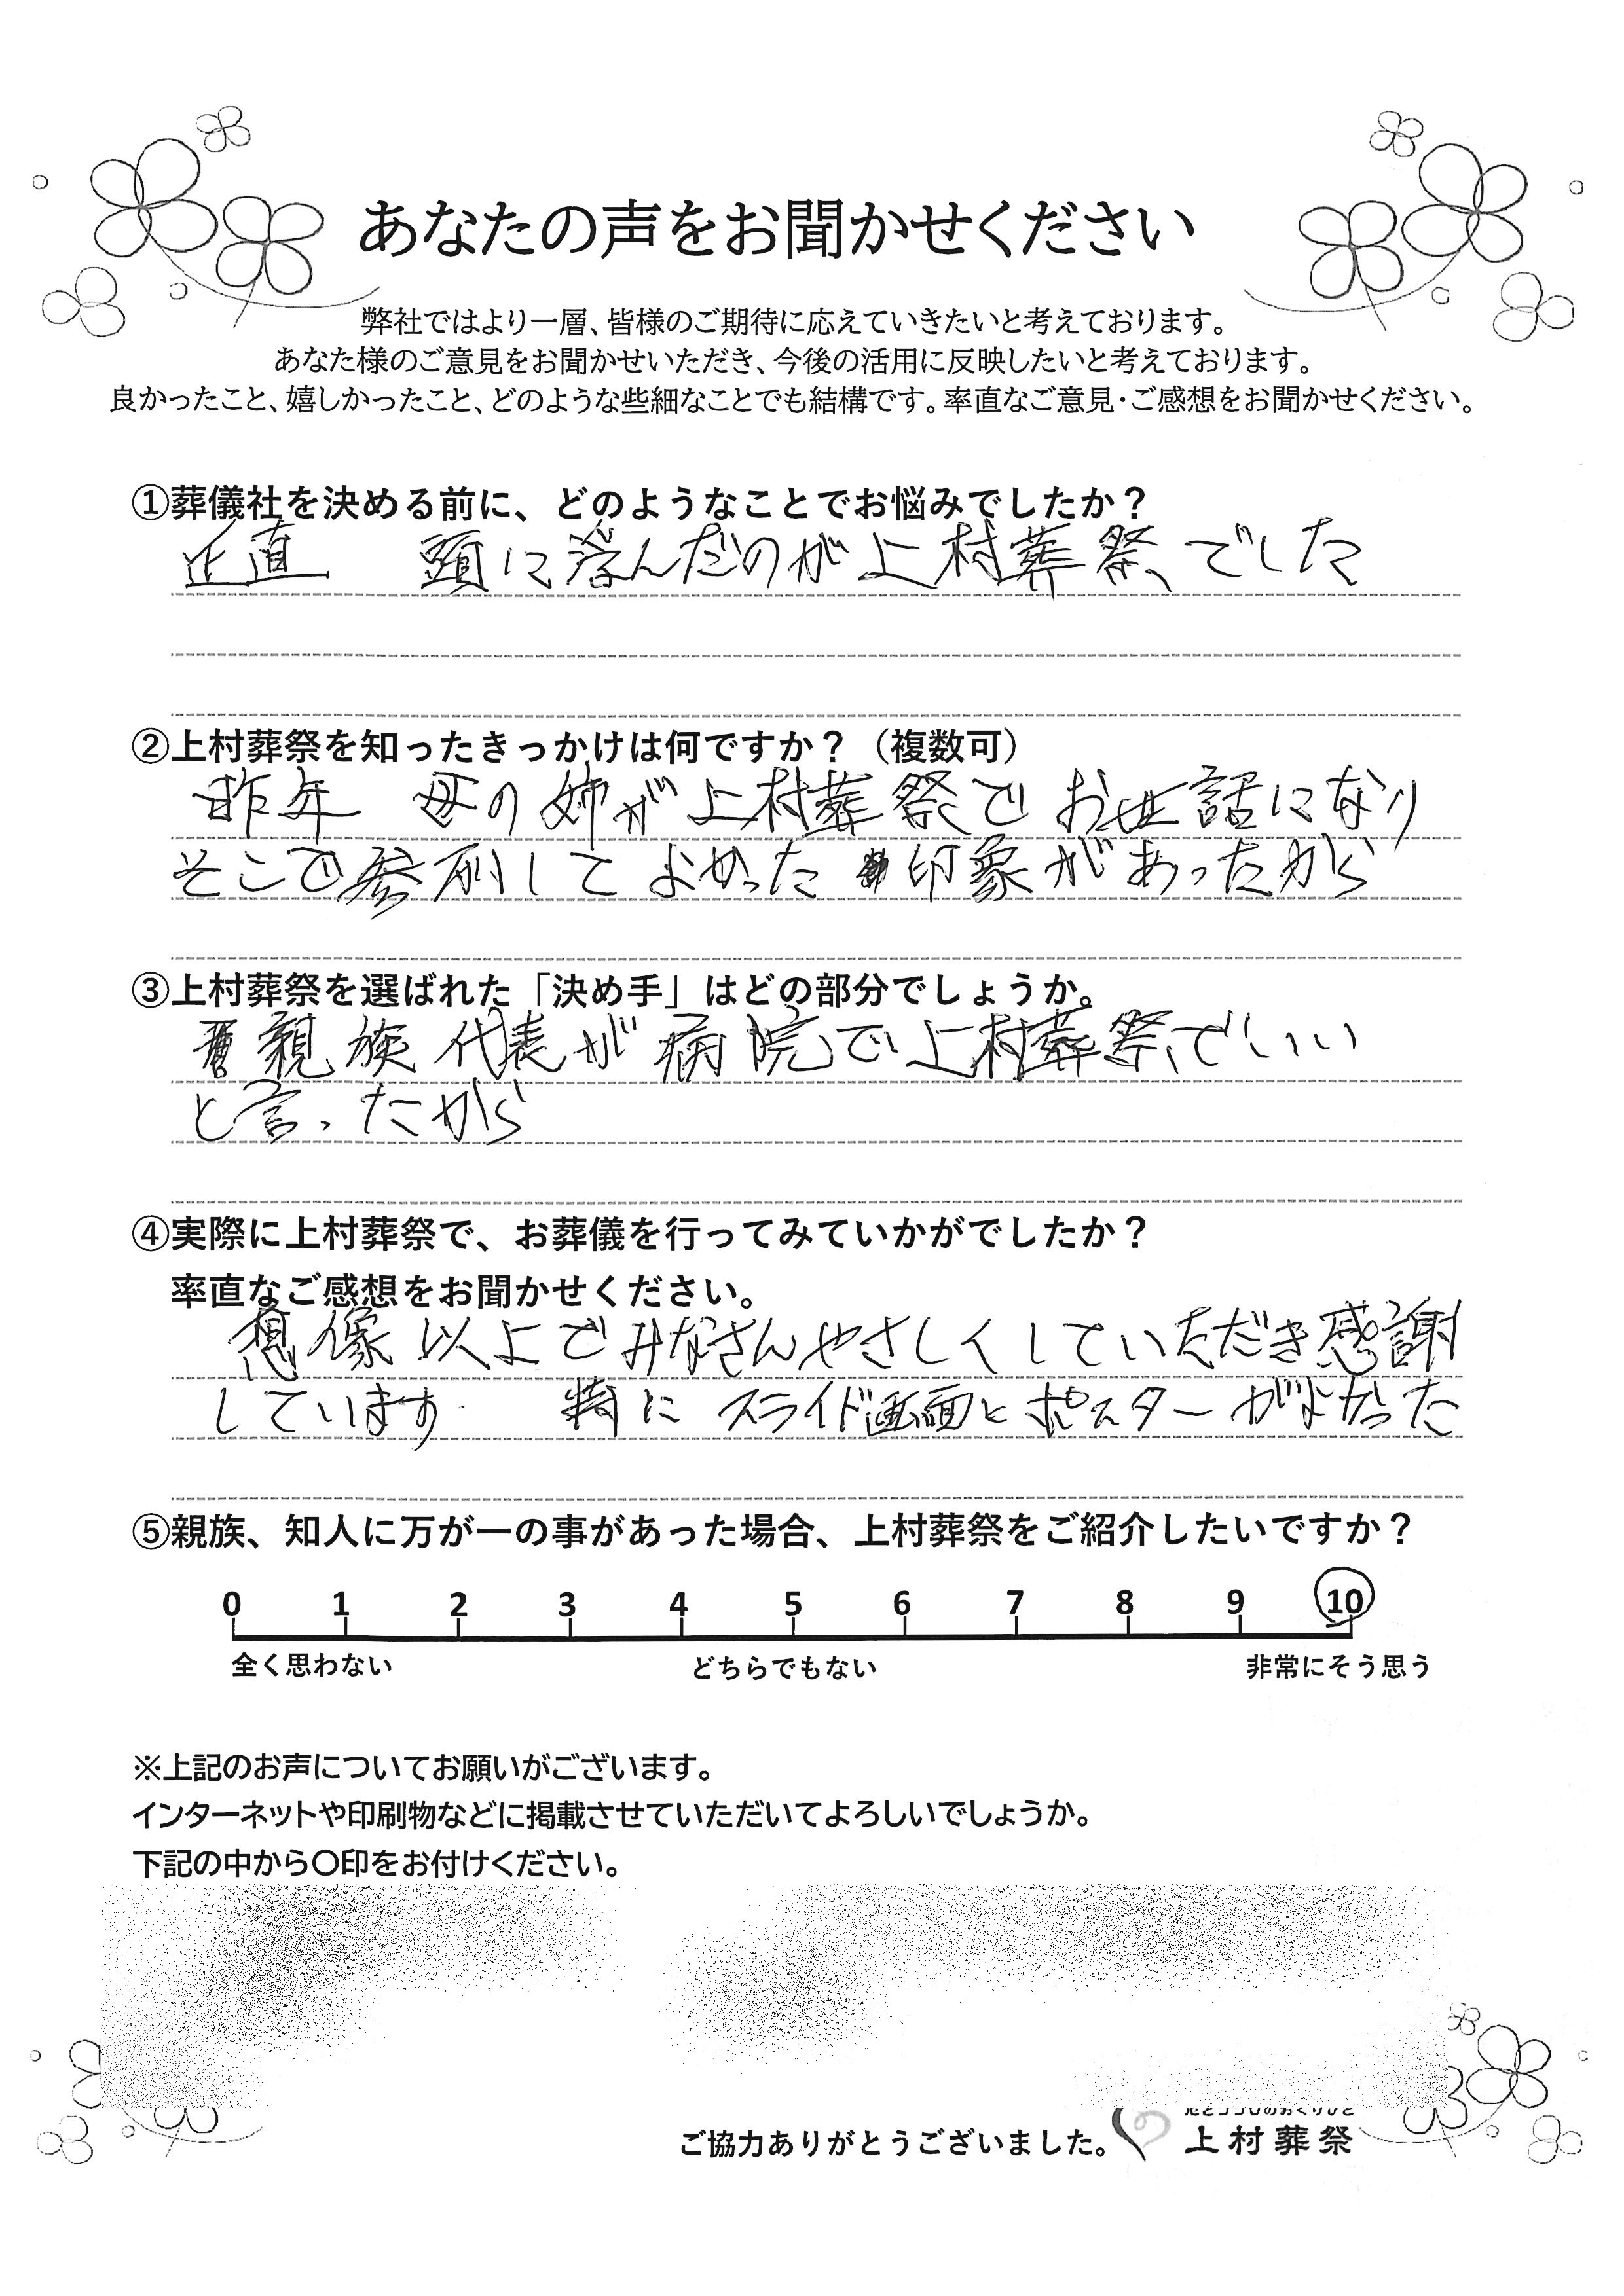 あなたの声をお聞かせください
弊社ではより一層、皆様のご期待に応えていきたいと考えております。
あなた様のご意見をお聞かせいただき、今後の活用に反映したいと考えております。
良かったこと、嬉しかったこと、どのような些細なことでも結構です。率直なご意見・ご感想をお聞かせください。
①葬儀社を決める前に、どのようなことでお悩みでしたか？
正直 頭に浮んだのが上村葬祭でした
②上村葬祭を知ったきっかけは何ですか？（複数可）
昨年 母の姉が上村葬祭でお世話になり
そこで参列してよかった印象があったから
③上村葬祭を選ばれた「決め手」はどの部分でしょうか。
親族代表が病院で上村葬祭でいい
と言ったから
④実際に上村葬祭で、お葬儀を行ってみていかがでしたか？
率直なご感想をお聞かせください。
想像以上でみなさんやさしくしていただき感謝
しています 特にスライド画面とポスターがよかった
⑤親族、知人に万が一の事があった場合、上村葬祭をご紹介したいですか？
0 1 2 3 4 5 6 7 8 9 10
全く思わない どちらでもない 非常にそう思う
※上記のお声についてお願いがございます。
インターネットや印刷物などに掲載させていただいてよろしいでしょうか。
下記の中から〇印をお付けください。
ご協力ありがとうございました。
上村葬祭